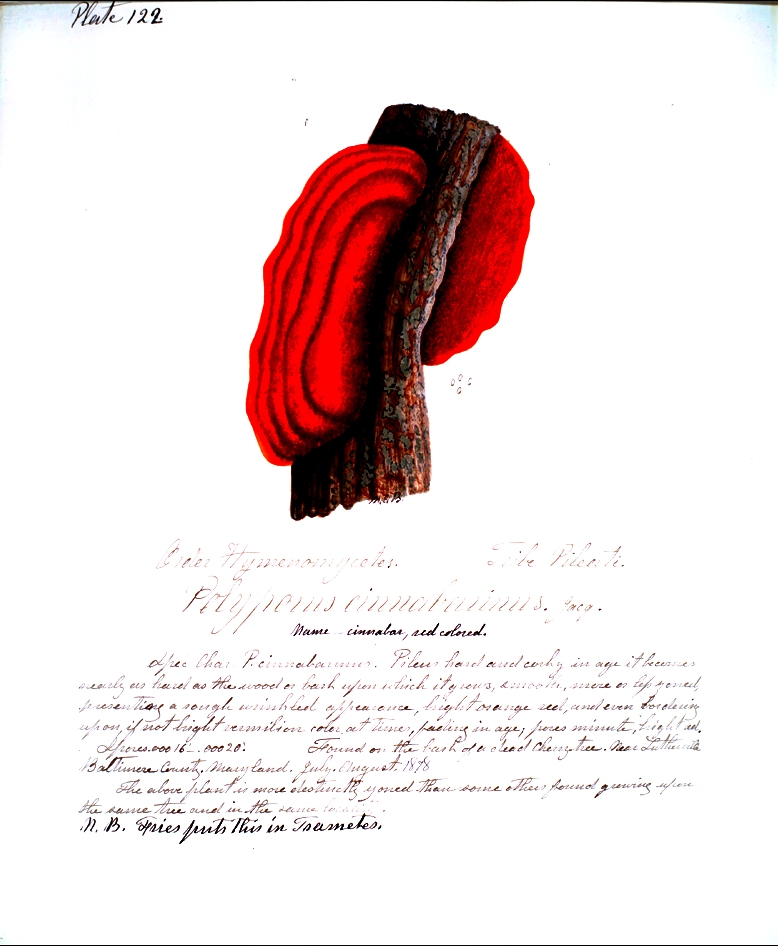 Plate 122.
M.E.B.
Order Hymenomycetes. Tribe Pileati.
Polyporus cinnabarinus. Jacq.
Name - cinnabar, red colored.
Spec Char. P. cinnabarinus. Pileus hard and corky in age it becomes
nearly as hard as the wood or bark upon which it grows, smooth, more or less zoned,
presenting a rough wrinkled appearance, bright orange red, and even bordering
upon, if not bright vermilion color at times, fading in age, pores minute, bright red.
Spores .00016 - .00020. Found on the bark of a dead Cherry tree. Near Lutherville
Baltimore County. Maryland. July. August 1878
The above plant is more distinctly zoned than some others found growing upon
the same tree and in the same locality.
N. B. Fries puts this in Trametes.